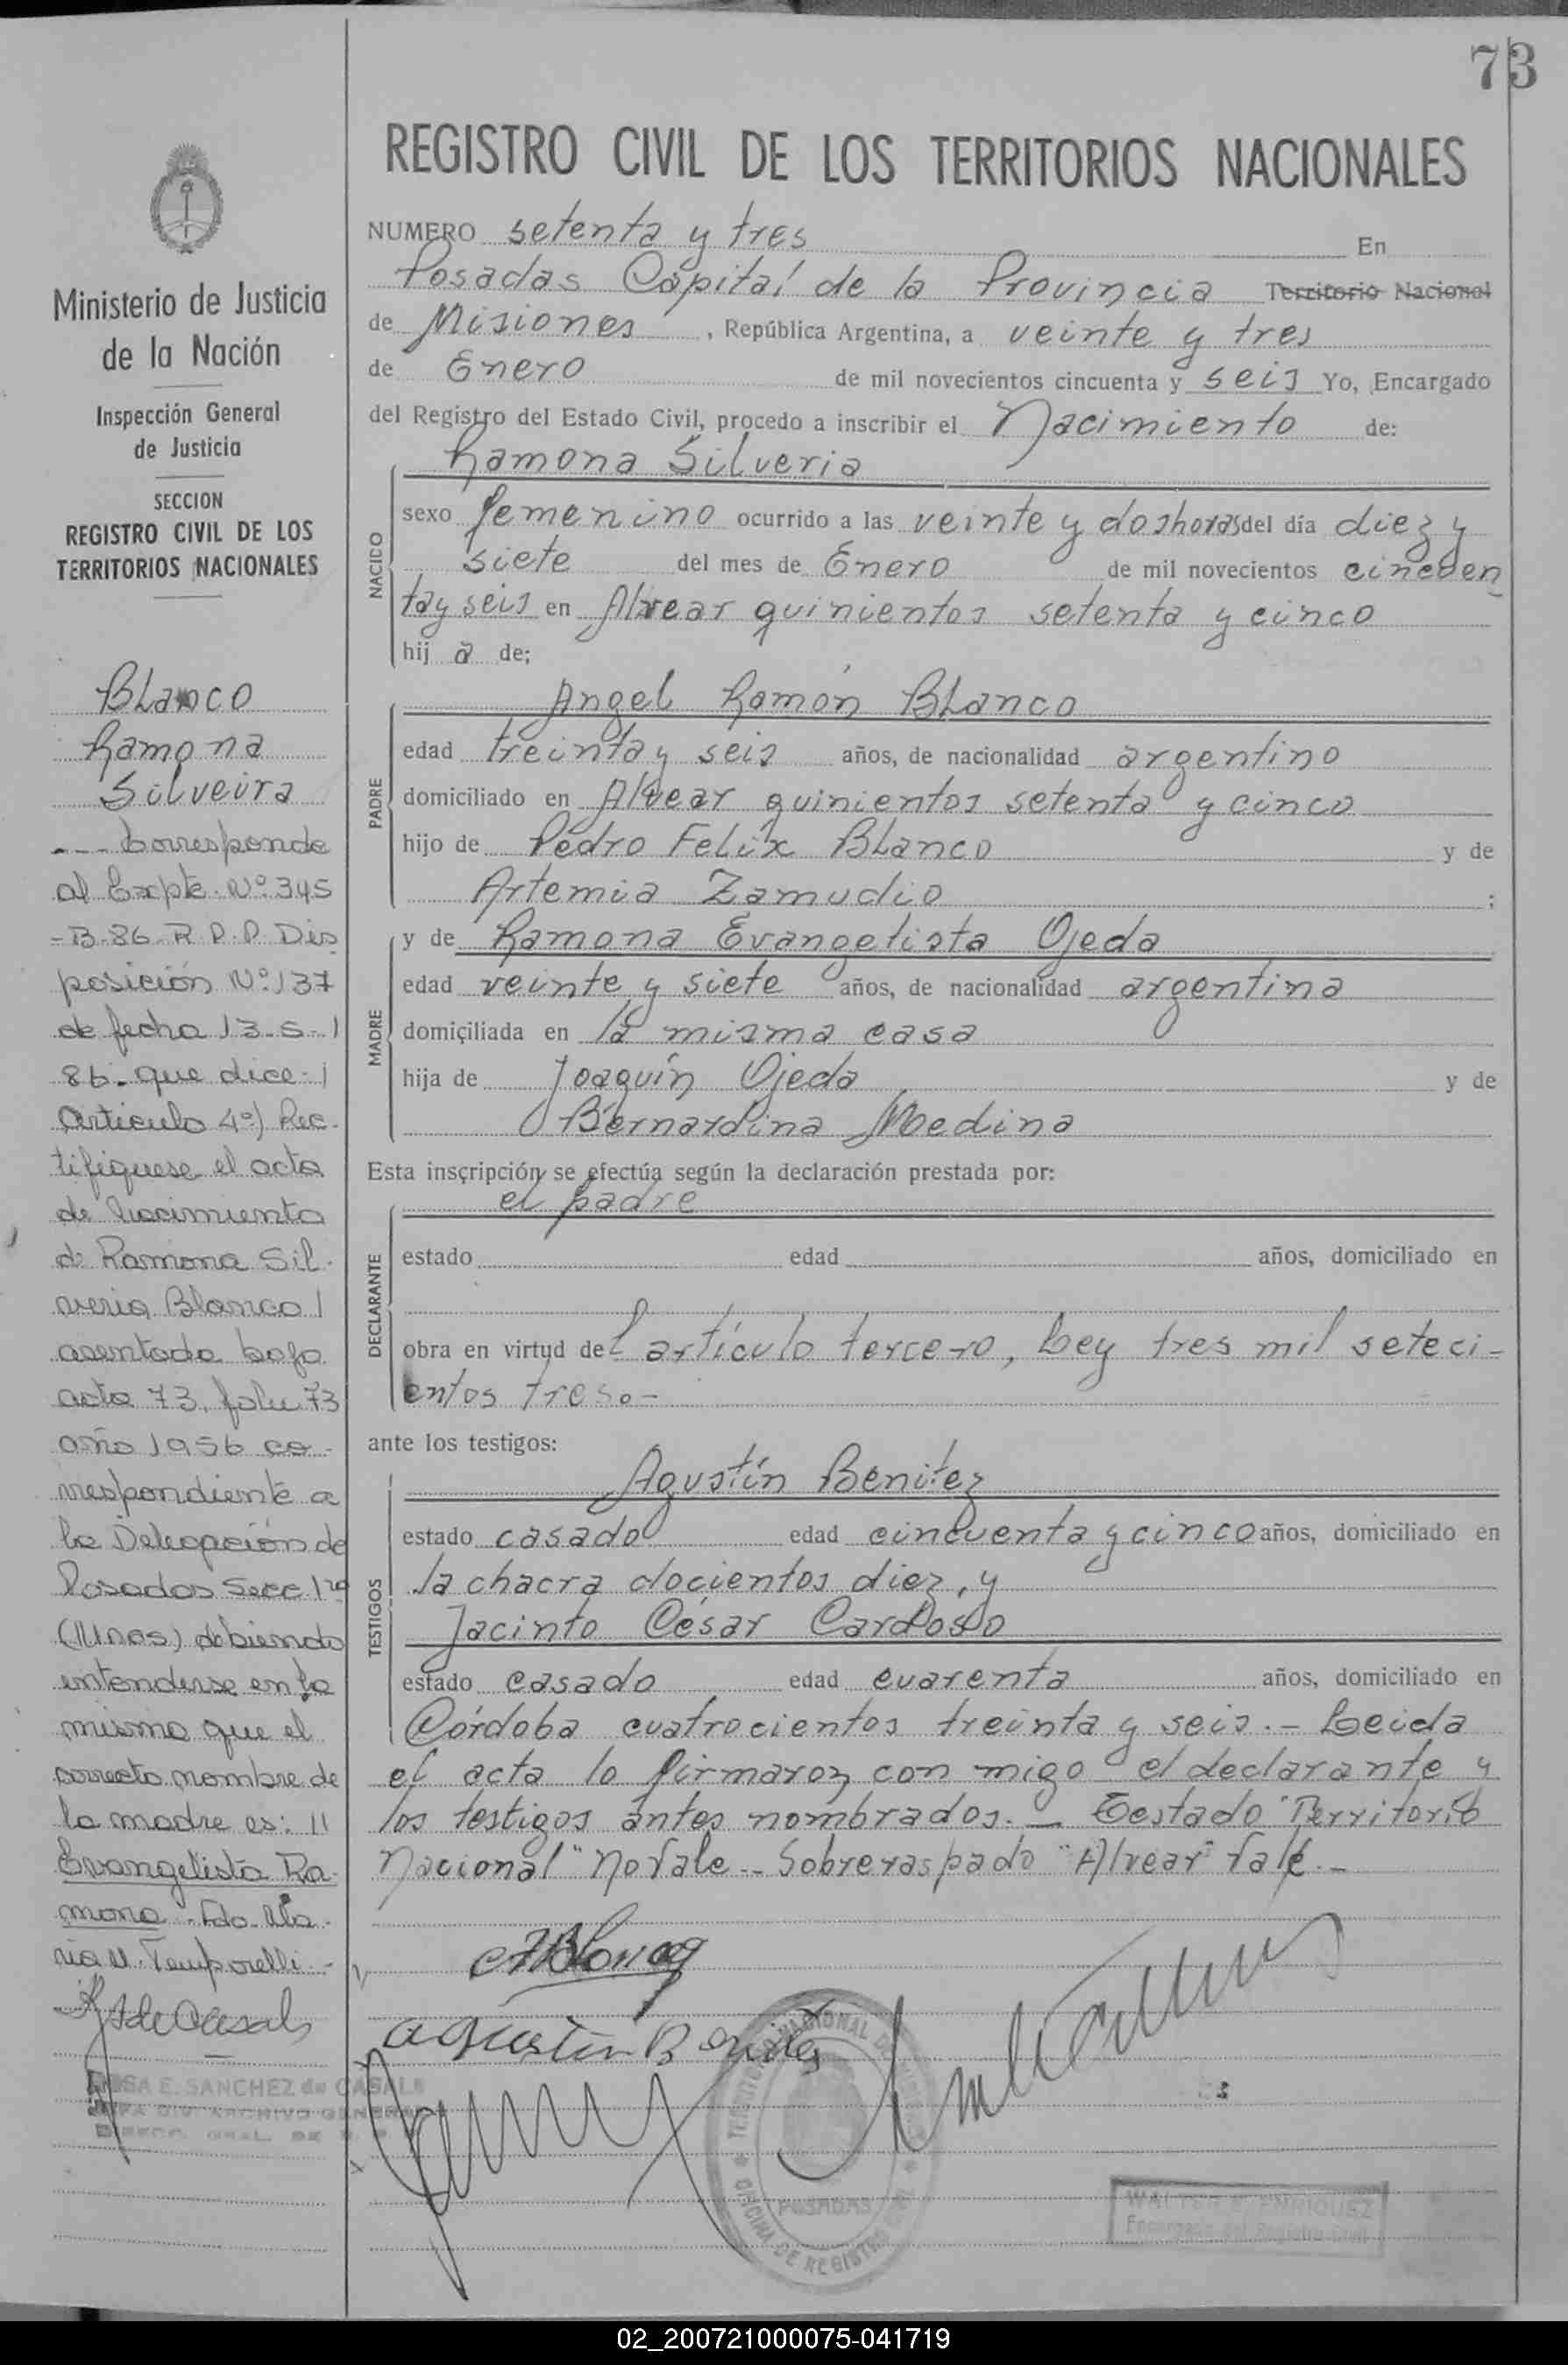 73
REGISTRO CIVIL DE LOS TERRITORIOS NACIONALES
NUMERO setenta y tres En
Posadas Capital de la Provincia Territorio Nacional
de Misiones, República Argentina, a veinte y tres
de Enero de mil novecientos cincuenta y seis Yo, Encargado
del Registro del Estado Civil, procedo a inscribir el Nacimiento de:
Ramona Silveria
NACIDO
sexo femenino ocurrido a las veinte y dos horas del día diez y
siete del mes de Enero de mil novecientos cincuen
ta y seis en Alvear quinientos setenta y cinco
hij a de;
Angel Ramón Blanco
PADRE
edad treinta y seis años, de nacionalidad argentino
domiciliado en Alvear quinientos setenta y cinco
hijo de Pedro Felix Blanco y de
Artemia Zamudio ;
y de Ramona Evangelista Ojeda
MADRE
edad veinte y siete años, de nacionalidad argentina
domiciliada en la misma casa
hija de Joaquín Ojeda y de
Bernardina Medina
Esta inscripción se efectúa según la declaración prestada por:
el padre
DECLARANTE
estado edad años, domiciliado en
obra en virtud del artículo tercero, Ley tres mil seteci-
entos tres.-
ante los testigos:
Agustín Benitez
TESTIGOS
estado casado edad cincuenta y cinco años, domiciliado en
la chacra docientos diez, y
Jacinto César Cardoso
estado casado edad cuarenta años, domiciliado en
Córdoba cuatrocientos treinta y seis.- Leida
el acta lo firmaron con migo el declarante y
los testigos antes nombrados.- Testado "Territorio
Nacional" no vale.- Sobreraspado "Alvear" vale.-
Agustín Benitez
TERRITORIO NACIONAL DE MISIONES
POSADAS
OFICINA DE REGISTRO CIVIL
WALTER E. ENRIQUEZ
Encargado del Registro Civil
Ministerio de Justicia
de la Nación
Inspección General
de Justicia
SECCION
REGISTRO CIVIL DE LOS
TERRITORIOS NACIONALES
Blanco
Ramona
Silveira
--- Corresponde
al Expte. Nº 345
-B-86 R.P.P. Dis
posición Nº 137
de fecha 13-5-
86. que dice:
Artículo 4º) Rec-
tifiquese el acta
de Nacimiento
de Ramona Sil-
veria Blanco
asentada bajo
acta 73, folio 73
año 1956 co-
rrespondiente a
la Delegación de
Posadas Secc. 1ra
(Mnes) debiendo
entenderse en la
misma que el
correcto nombre de
la madre es: "
Evangelista Ra-
mona". Fdo. Ma-
ria N. Temporelli.-
ROSA E. SANCHEZ de CASALS
JEFA DIV. ARCHIVO GENERAL
02_200721000075-041719